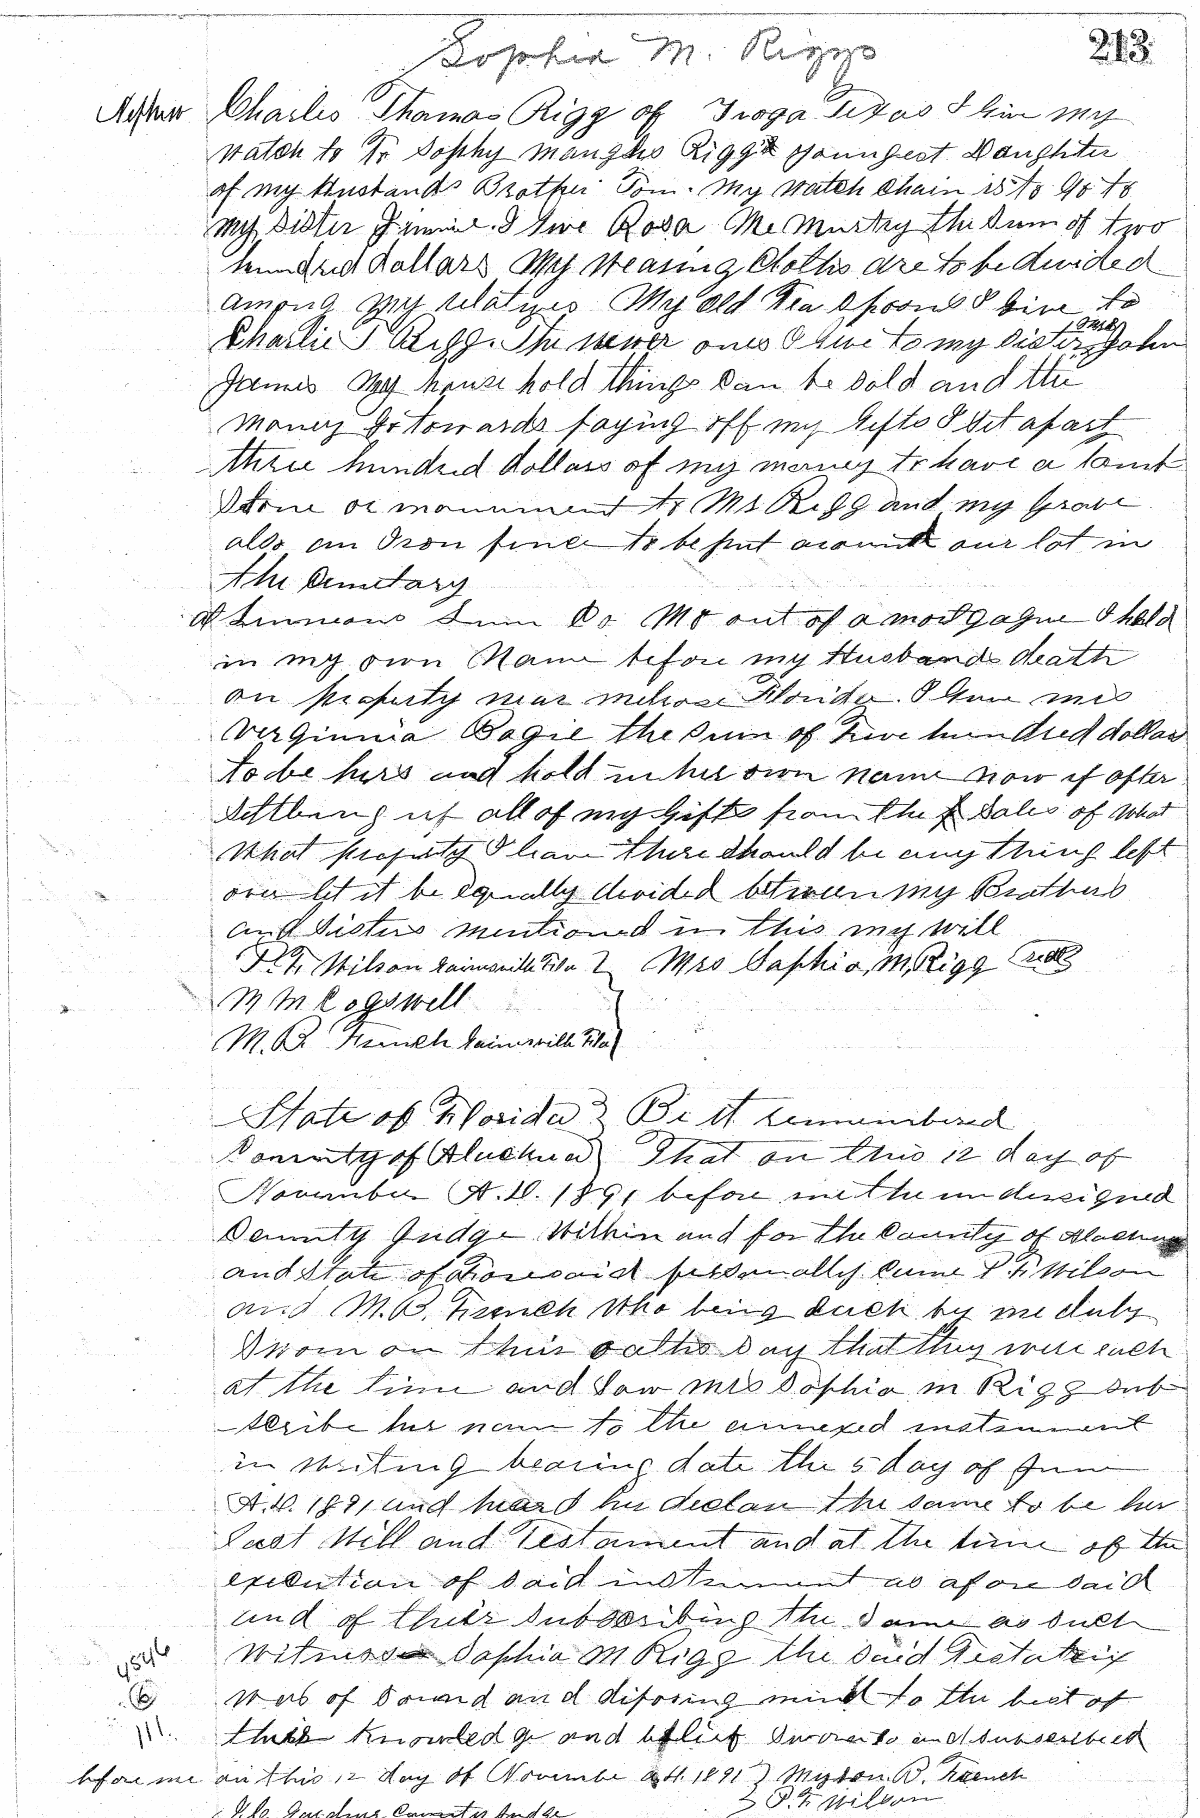 Sophia M. Riggs
213
Nephew Charles Thomas Rigg of Troga Texas I Give my
watch to Sophy Rigg youngest Daughter
of my Husbands Brother Tom. My watch chain is to go to
my sister Jimmie. I Give Rosa Mc Murtry the sum of two
hundred dollars My wearing Cloths are to be devided
among my relatives My old Tea spoons I Give to
Charlie T Rigg. The newer ones I Give to my sister Mrs John
James My house hold things can be sold and the
money Go towards paying off my Gifts I set apart
three hundred dollars of my money to have a tomb
stone or monument to Mr Rigg and my Grave
also an Iron fence to be put around our lot in
the Cemetary
Co Mo out of a mortgague I held
in my own Name before my Husbands death
on property near melrose Florida. I Gave mrs
Verginnia Bogie the sum of Five hundred dollars
to be hers and hold in her own name now if after
settleing up all of my Gifts from the Sales of What
What property I leave there should be any thing left
over let it be equally devided between my Brothers
and Sisters mentioned in this my will
P. F. Wilson Gainsville Fla } Mrs Sophia M, Rigg Seal
M M Cogswell
M. B. French Gainsville Fla

State of Florida } Be it remembered
County of Alachua } That on this 12 day of
November A.D. 1891 before me the undersigned
County Judge Within and for the County of Alachua
and State of aforesaid personally came P F. Wilson
and M. B. French who being each by me duly
Sworn on their oaths say that they were each
at the time and saw mrs Sophia m Rigg sub
scribe her name to the annexed instrument
in writing bearing date the 5 day of June
A.D. 1891 and heard her declare the same to be her
Last Will and Testament and at the time of the
execution of said instrument as afore said
and of their subscribing the same as such
Witnesses Sophia M Rigg the said Testatrix
was of sound and disposing mind to the best of
their Knowledge and belief Sworn to and subscribed
4546
6
111.
before me on this 12 day of Novembe A.D. 1891 } Myron. B. French
County Judge } P. F. Wilson